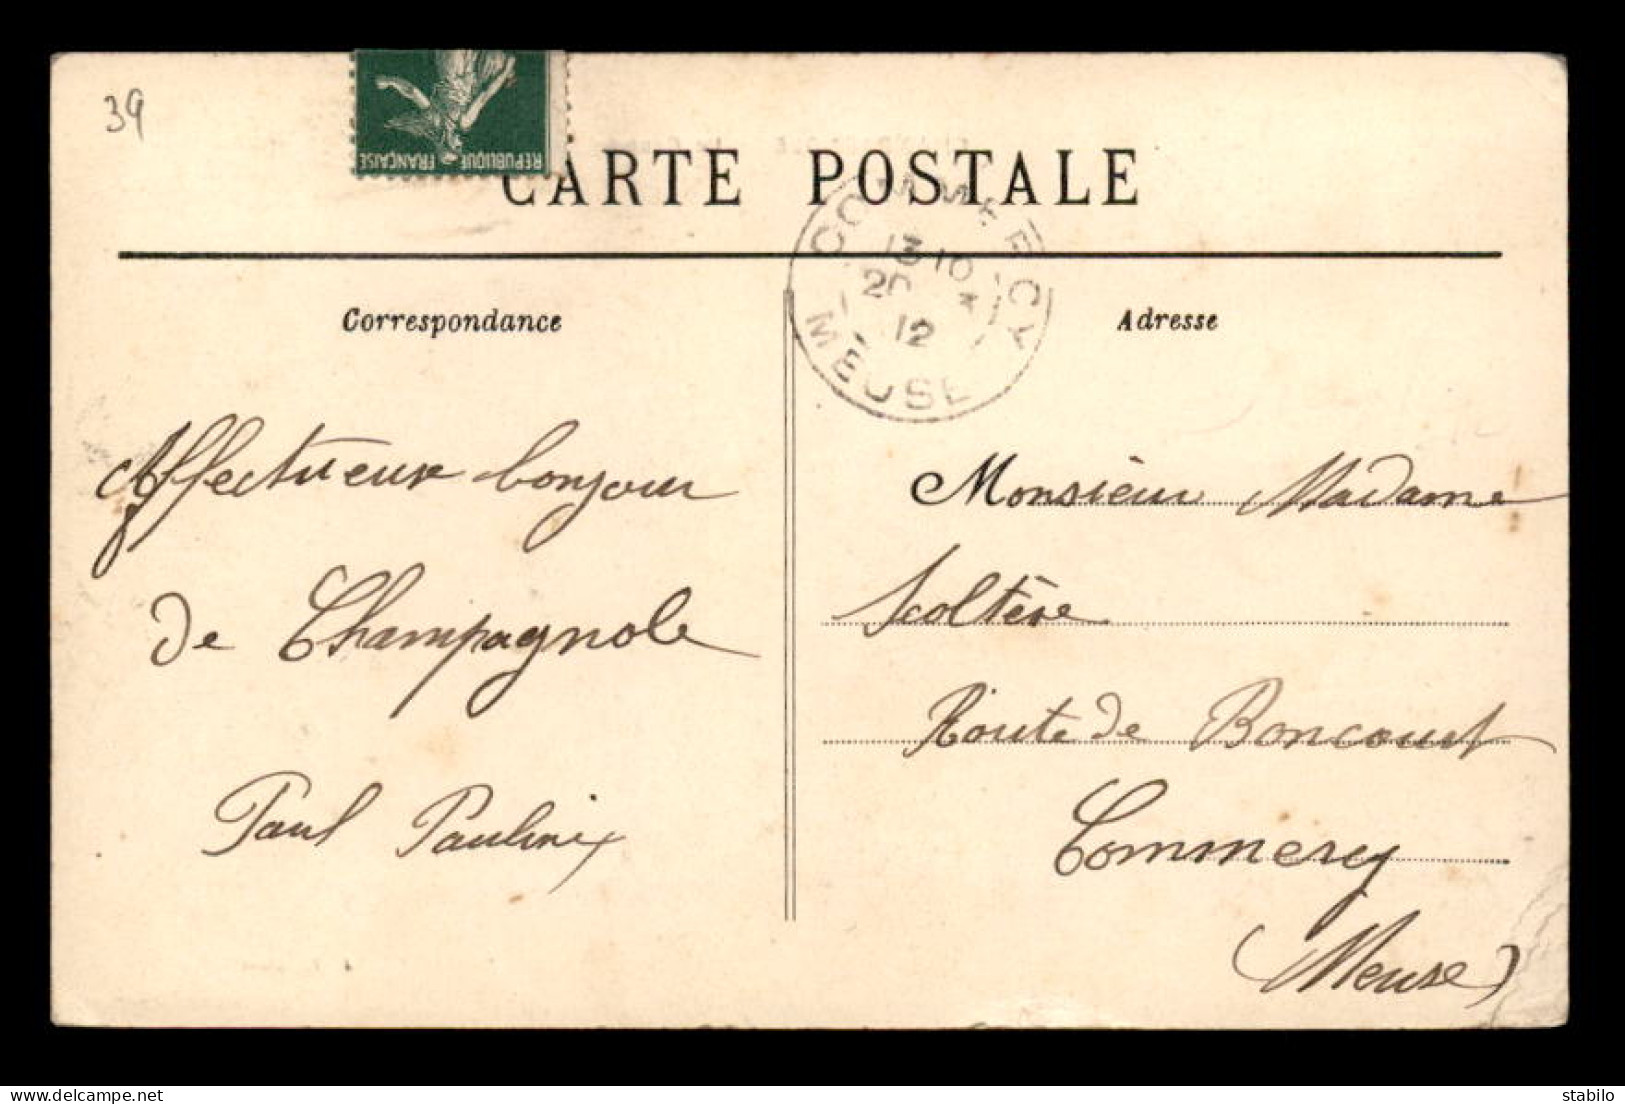 39
REPUBLIQUE FRANÇAISE
CARTE POSTALE
COMMERCY
13 10
20 *
12
MEUSE
Correspondance
Adresse
Affectueux bonjour
de Champagnole
Paul Pauline
Monsieur Madame
Scoltère
Route de Boncourt
Commercy
(Meuse)
stabilo | Delcampe.net